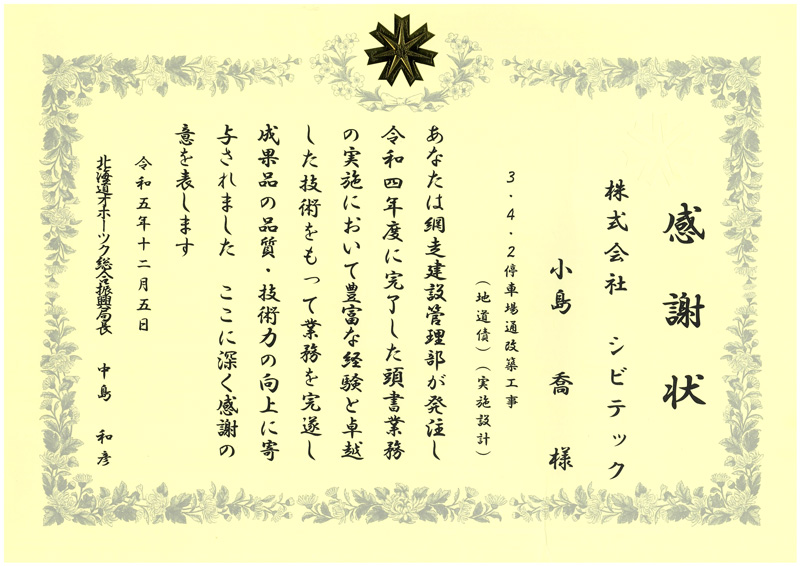 感謝状
株式会社 シビテック
小島 喬 様
3・4・2停車場通改築工事
(地道債)(実施設計)
あなたは網走建設管理部が発注し
令和四年度に完了した頭書業務
の実施において豊富な経験と卓越
した技術をもって業務を完遂し
成果品の品質・技術力の向上に寄
与されました ここに深く感謝の
意を表します
令和五年十二月五日
北海道オホーツク総合振興局長 中島 和彦